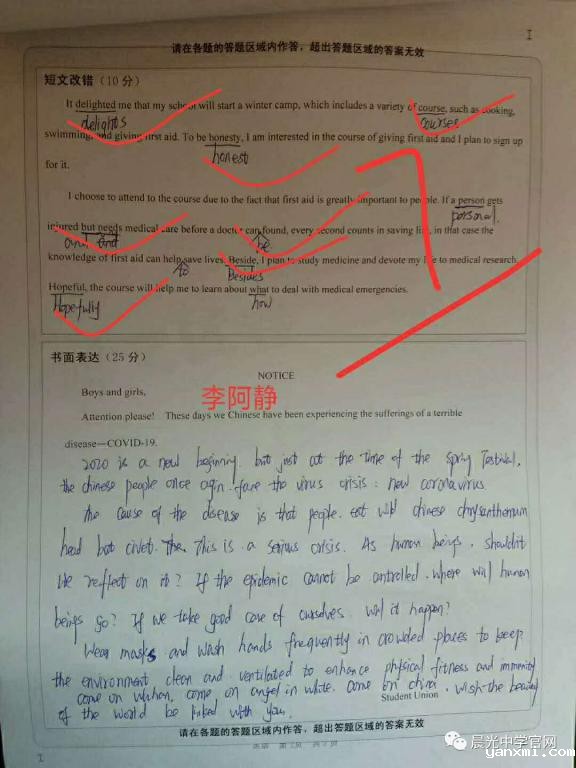 I
请在各题的答题区域内作答，超出答题区域的答案无效
短文改错（10分）
It delighted me that my school will start a winter camp, which includes a variety of course, such as cooking,
delights
courses
swimming, and giving first aid. To be honesty, I am interested in the course of giving first aid and I plan to sign up
honest
for it.
I choose to attend to the course due to the fact that first aid is greatly important to people. If a person gets
personal
injured but needs medical care before a doctor can found, every second counts in saving life, in that case the
and and
be
knowledge of first aid can help save lives. Beside, I plan to study medicine and devote my life to medical research.
to
Besides
Hopeful, the course will help me to learn about what to deal with medical emergencies.
Hopefully
how
7
书面表达（25分）
NOTICE
Boys and girls,
李阿静
Attention please! These days we Chinese have been experiencing the sufferings of a terrible
disease—COVID-19.
2020 is a new beginning. but just at the time of the Spring Testival,
the chinese people once agin fare the virus crisis: new coronavirus.
the cause of the disease is that people. eat wild chinese chrysanthemum
head bat civet. The. This is a serious crisis. As human beings. shouldn't
we reflect on it? If the epidemic cannot be controlled. where will human
beings go? If we take good care of ourselves. will it happen?
Wear masks and wash hands frequently in crowded places to keep
the environment clean and ventilated to enhance physical fitness and immunity
come on wuhan, come on angel in white. come on china. wish the beauty
Student Union
of the world be linked with you.
请在各题的答题区域内作答，超出答题区域的答案无效
I
晨光中学官网
yanxmi.com